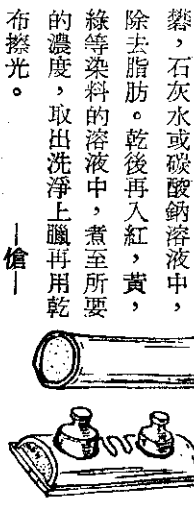 礬，石灰水或碳酸鈉溶液中，
除去脂肪。乾後再入紅，黃，
綠等染料的溶液中，煮至所要
的濃度，取出洗淨上臘再用乾
布擦光。　—愴—